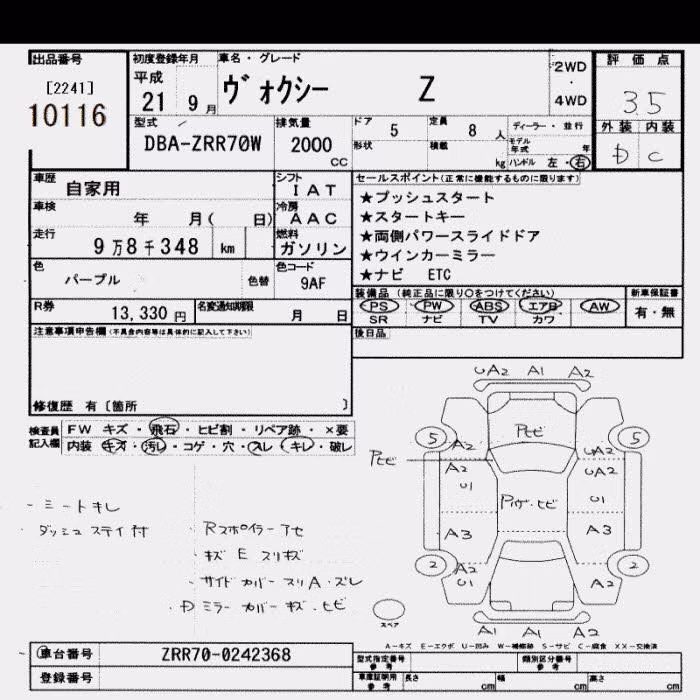 出品番号
[2241]
10116
初度登録年月
平成
21 9 月
車名・グレード
ヴォクシー Z
2WD
・
4WD
評価点
3.5
外装 内装
D C
型式
DBA-ZRR70W
排気量
2000
CC
ドア 5
定員 8 人
形状
積載 kg
ディーラー・並行
モデル年式 年
ハンドル 左・右
車歴 自家用
シフト
IAT
車検 年 月( 日)
冷房
AAC
走行
9万8千348 km
燃料
ガソリン
色
パープル 色替
色コード
9AF
R券 13,330 円
名変通知期限 月 日
セールスポイント(正常に機能するものに限ります)
★プッシュスタート
★スタートキー
★両側パワースライドドア
★ウインカーミラー
★ナビ ETC
装備品 (純正品に限り〇をつけてください)
PS PW ABS エアB AW
SR ナビ TV カワ
新車保証書
有・無
後日品
注意事項申告欄(不具合内容等は具体的に記入して下さい)
修復歴 有〔箇所 〕
検査員記入欄
FW キズ・飛石・ヒビ割・リペア跡・×要
内装 キズ・汚レ・コゲ・穴・スレ・キレ・破レ
・ミートキレ
・ダッシュ ステイ付
・Rスポイラー アセ
・キズ E スリキズ
・サイド カバー スリA・ズレ
・D ミラー カバー キズ・ヒビ
UA2 A1 A2
Pヒビ
5 5
A2 A2
Pヒビ
A2 UA2
U1 U1
A3 A3
2 2
A2 A2
U1 A2
A1 A1 A2
スペア
A-キズ E-エクボ U-凹み W-補修跡 S-サビ C-腐食 XX-交換済
車台番号 ZRR70-0242368
登録番号
型式指定番号
参考
類別区分番号
参考
車庫証明用
参考
長さ cm 幅 cm 高さ cm